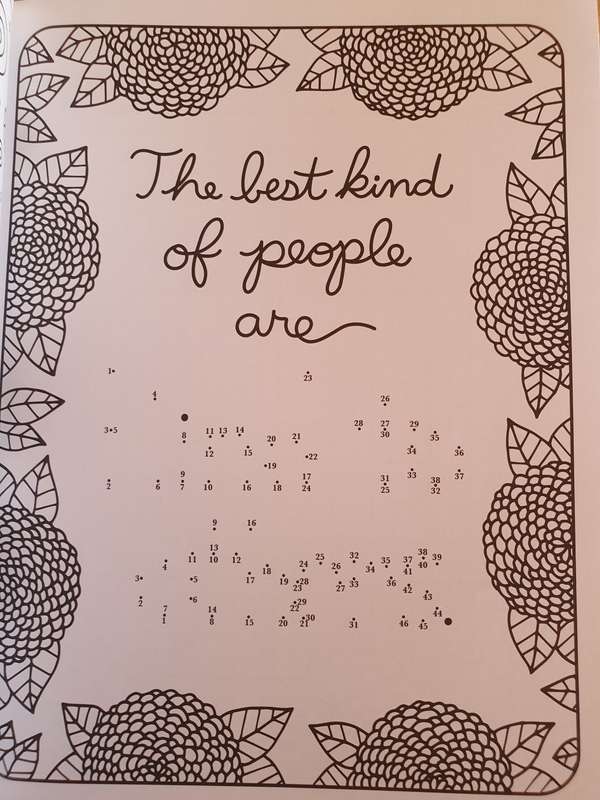 The best kind
of people
are
1 23
4 26
28 27 29
3 5 8 11 13 14 20 21 30 35
12 15 34 36
19 22
9 17 31 33 37
2 6 7 10 16 18 24 25 38
32
9 16
13 32 38
11 10 12 25 35 37 39
4 18 24 26 34 41 40
3 5 17 19 28 27 33 36
23 42
2 6 29 43
7 14 22 44
1 8 15 20 21 30 31 46 45